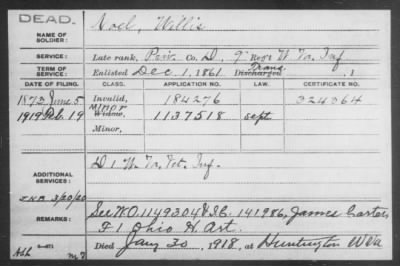 DEAD.
NAME OF SOLDIER: Noel, Willis
SERVICE: Late rank, Priv. Co. D, 9" Reg't W. Va. Inf
TERM OF SERVICE: Enlisted Dec. 1, 1861. Discharged Trans , 1
DATE OF FILING. CLASS. APPLICATION NO. LAW. CERTIFICATE NO.
1873 June 5 Invalid, 184276 324364
1919 Feb. 19 Minor Widow, 1137518 sept.
Minor,
ADDITIONAL SERVICES: D 1 W. Va. Vet. Inf.
REMARKS: See W.O. 1149304 & I.C. 141986, James Carter,
F 1 Ohio H. Art.
Died Jany 30, 1918, at Huntington W Va